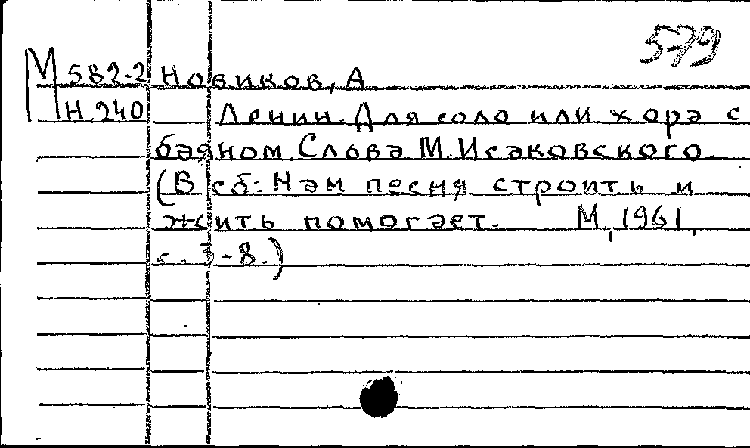 579
М 582-2 Новиков, А.
Н 240 Ленин. Для соло или хора с
баяном. Слова М. Исаковского.
(В сб: Нам песня строить и
жить помогает. М, 1961,
с. 3-8.)